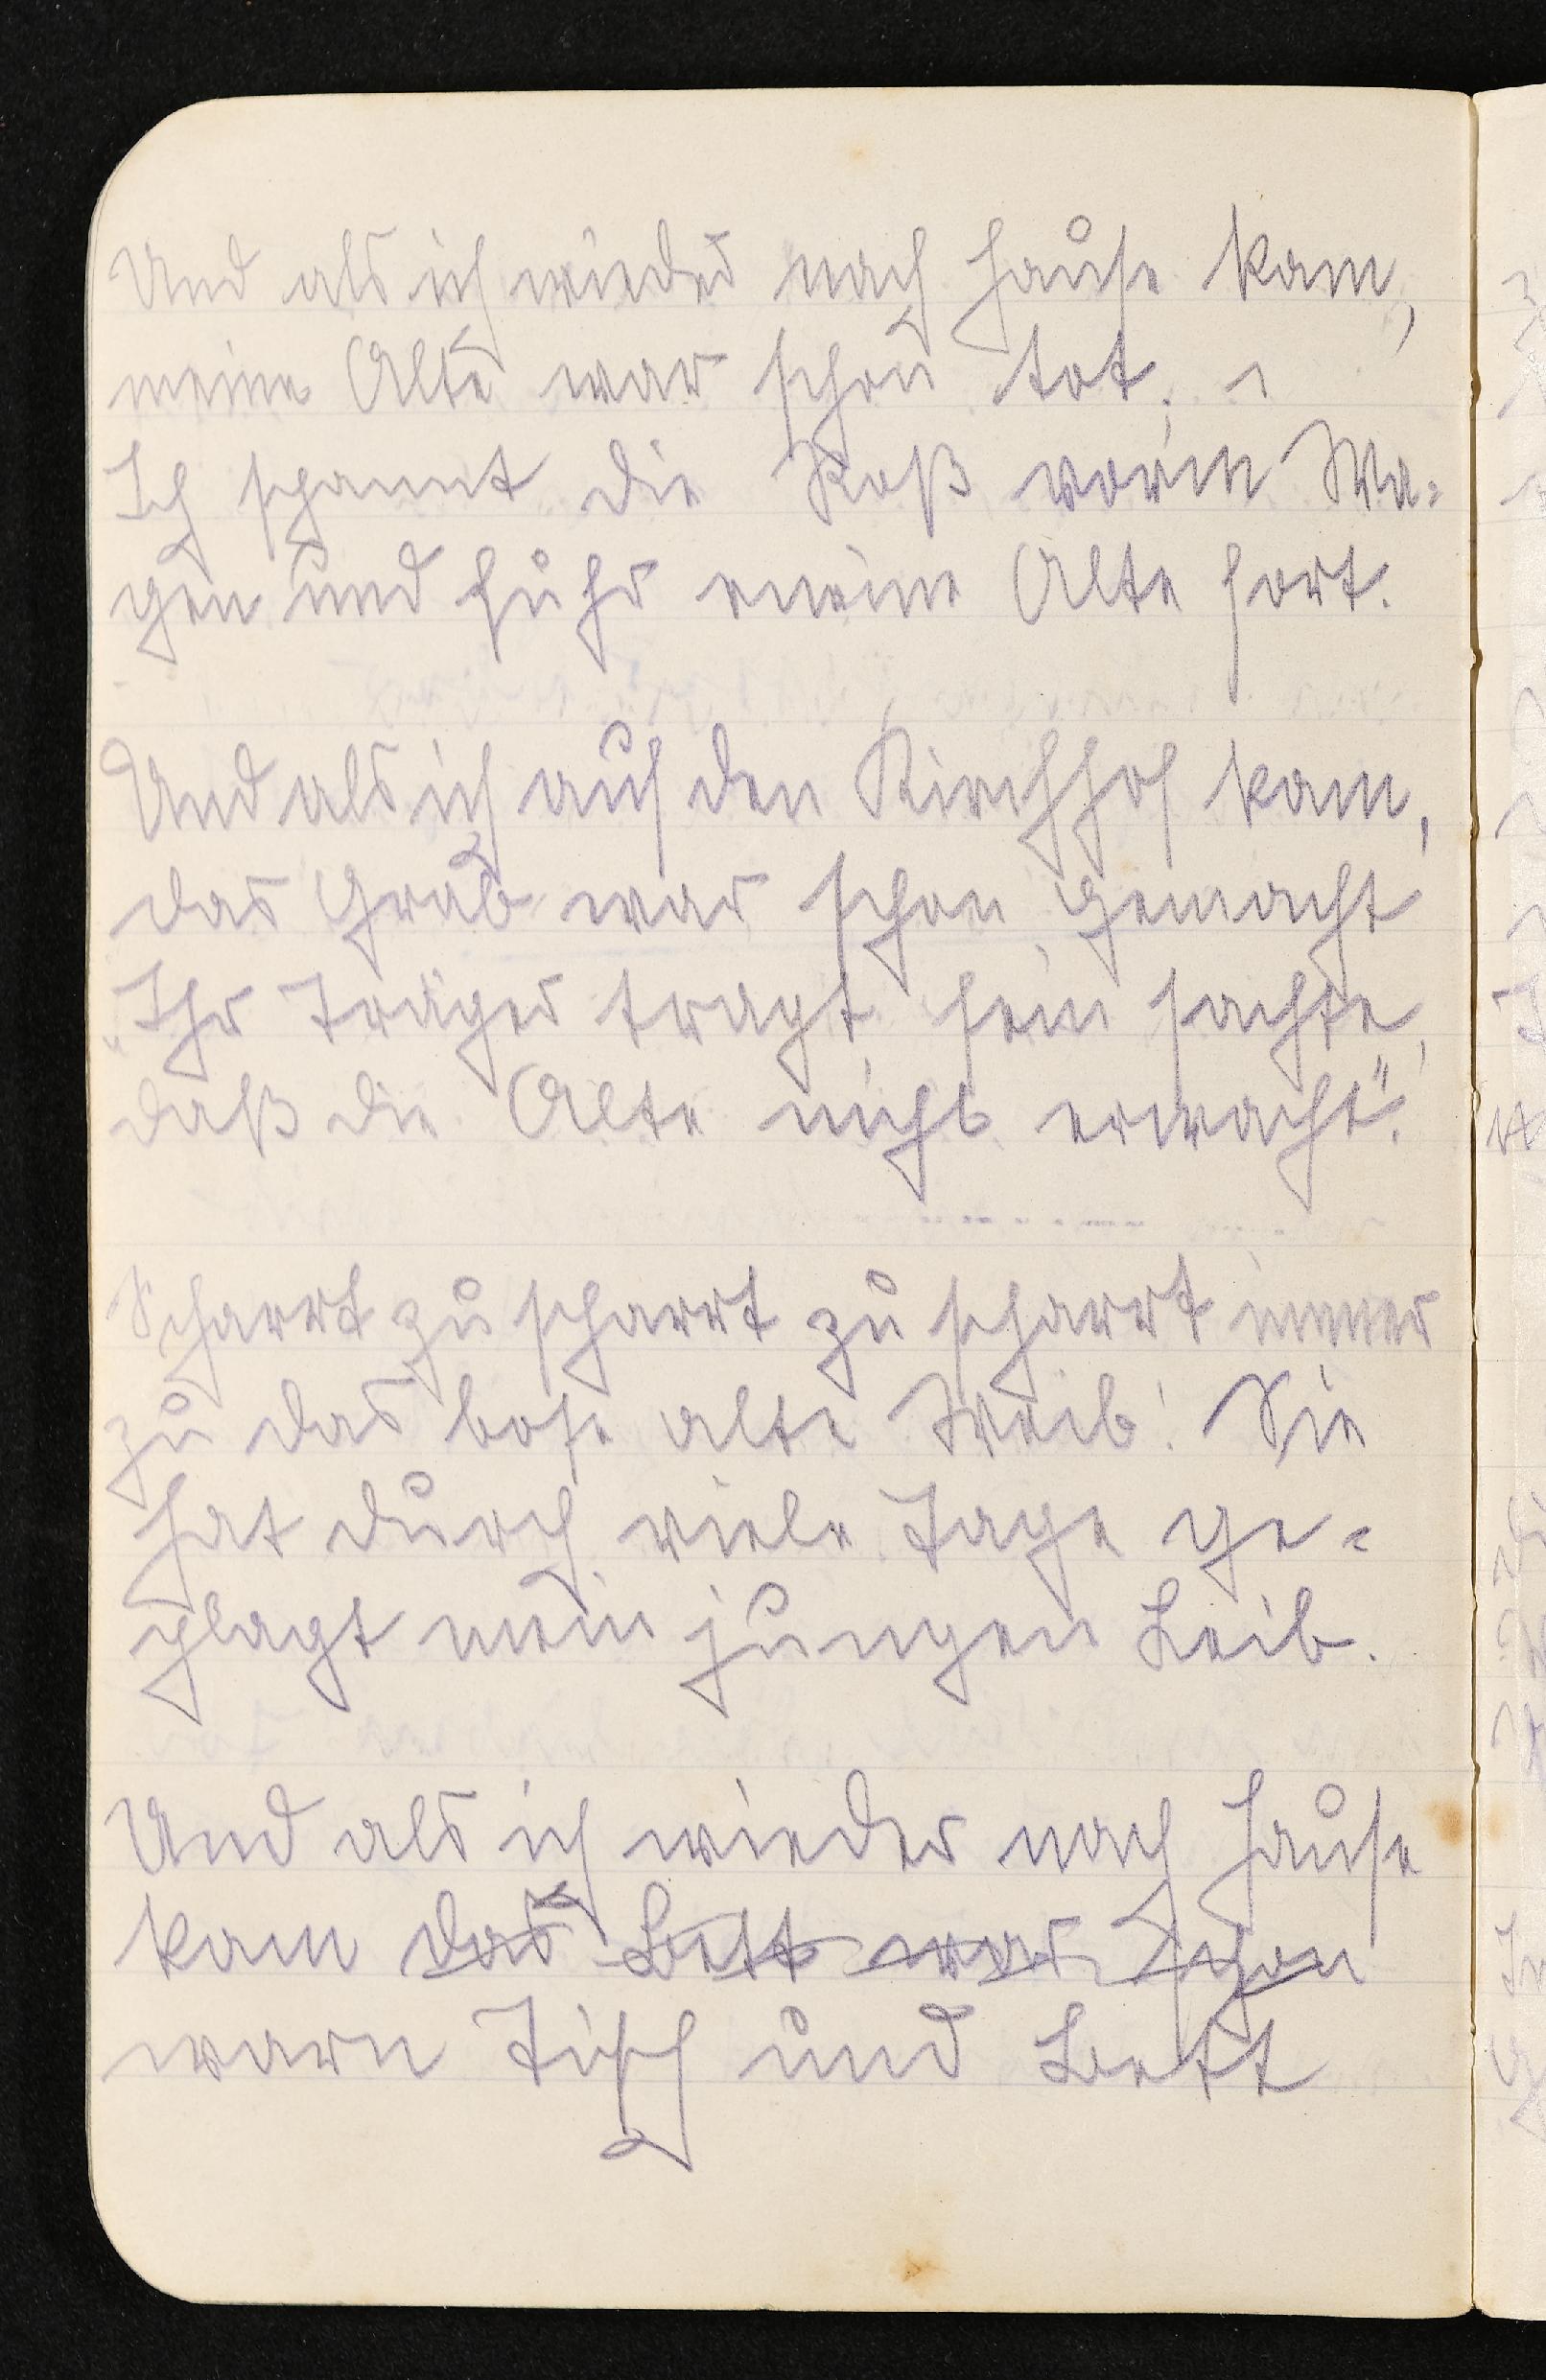 Und als ich wieder nach Hause kam,
meine Alte war schon tot.
Ich spannt die Roß vorm Wa-
gen und fuhr meine Alte fort.
Und als ich auf den Kirchhof kam,
das Grab war schon gemacht
"Ihr Träger tragt fein sachte,
daß die Alte nicht erwacht".
Scharrt zu scharrt zu scharrt immer
zu das böse alte Weib! Sie
hat durch viele Tage ge-
plagt mein jungen Leib.
Und als ich wieder nach Hause
kam das Bett war schon
warn Tisch und Bett